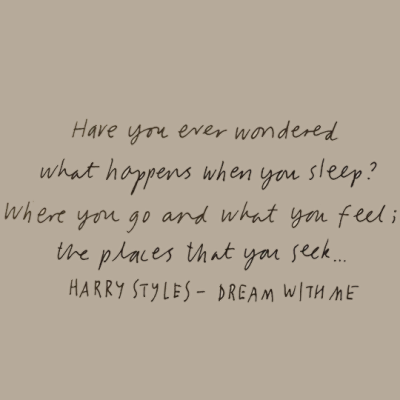 Have you ever wondered
what happens when you sleep?
Where you go and what you feel;
the places that you seek...
HARRY STYLES - DREAM WITH ME